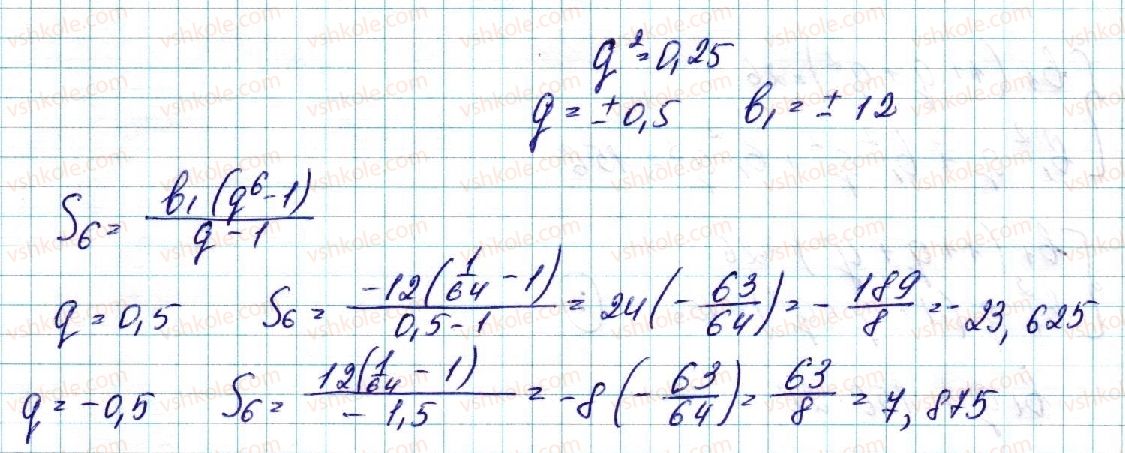 q² = 0,25
q = ± 0,5 b₁ = ± 12
S₆ = b₁(q⁶ - 1) / q - 1
q = 0,5 S₆ = -12(1/64 - 1) / 0,5 - 1 = 24(- 63/64) = - 189/8 = - 23,625
q = -0,5 S₆ = 12(1/64 - 1) / - 1,5 = -8(- 63/64) = 63/8 = 7,875
vshkole.com